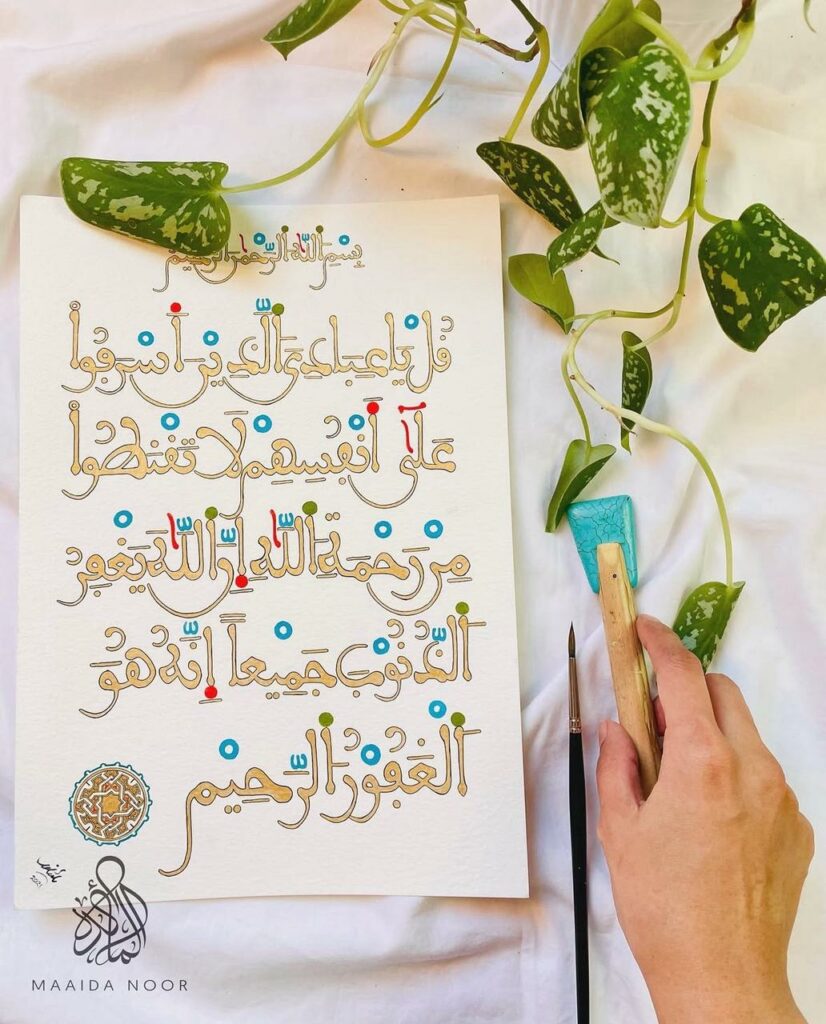 بِسْمِ اللَّهِ الرَّحْمَٰنِ الرَّحِيمِ
قُلْ يَا عِبَادِىَ الَّذِينَ أَسْرَفُوا
عَلَىٰٓ أَنْفُسِهِمْ لَا تَقْنَطُوا
مِنْ رَحْمَةِ اللَّٰهِ إِنَّ اللَّٰهَ يَغْفِرُ
الذُّنُوبَ جَمِيعاً إِنَّهُ هُوَ
الْغَفُورُ الرَّحِيمُ
2021
المائدة
MAAIDA NOOR